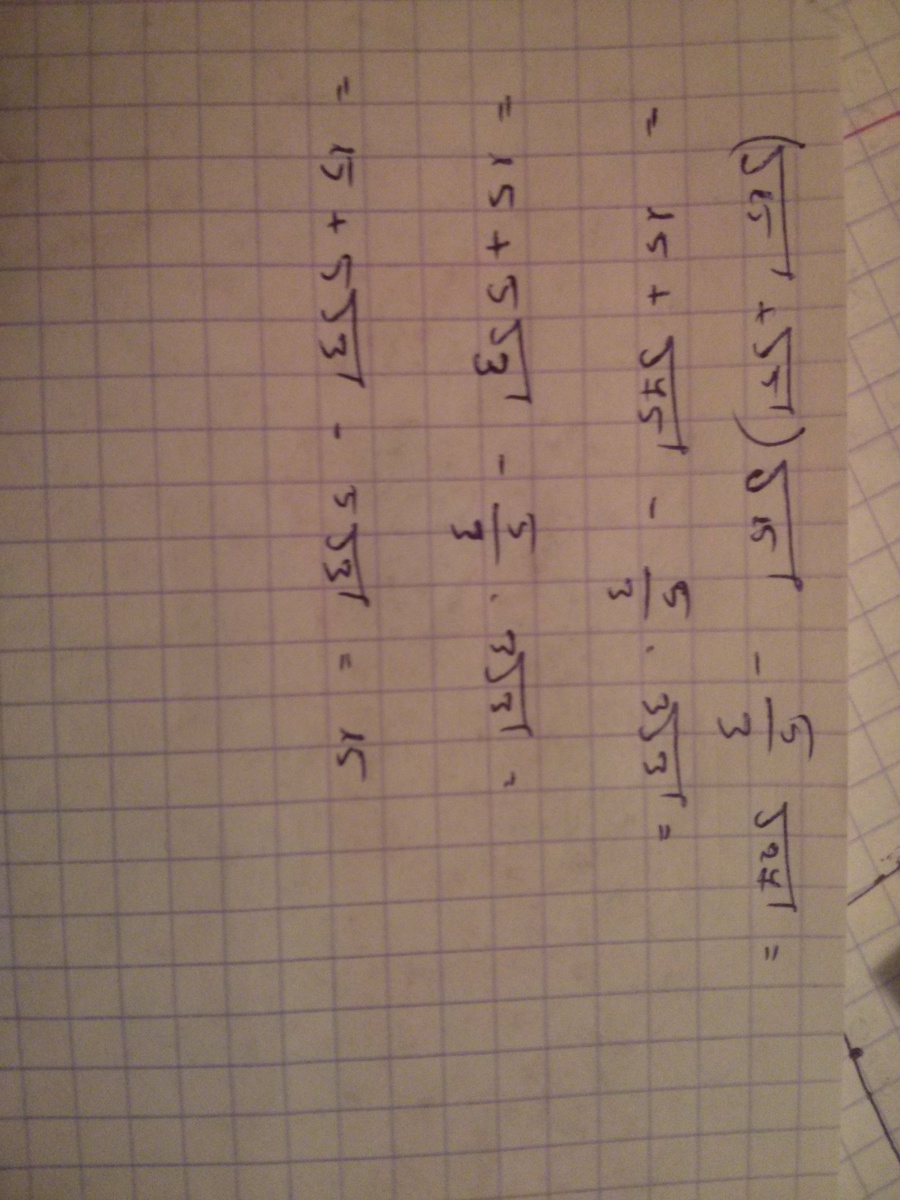 (√15 + √5) √15 - 5/3 √27 =
= 15 + √75 - 5/3 · 3√3 =
= 15 + 5√3 - 5/3 · 3√3 =
= 15 + 5√3 - 5√3 = 15